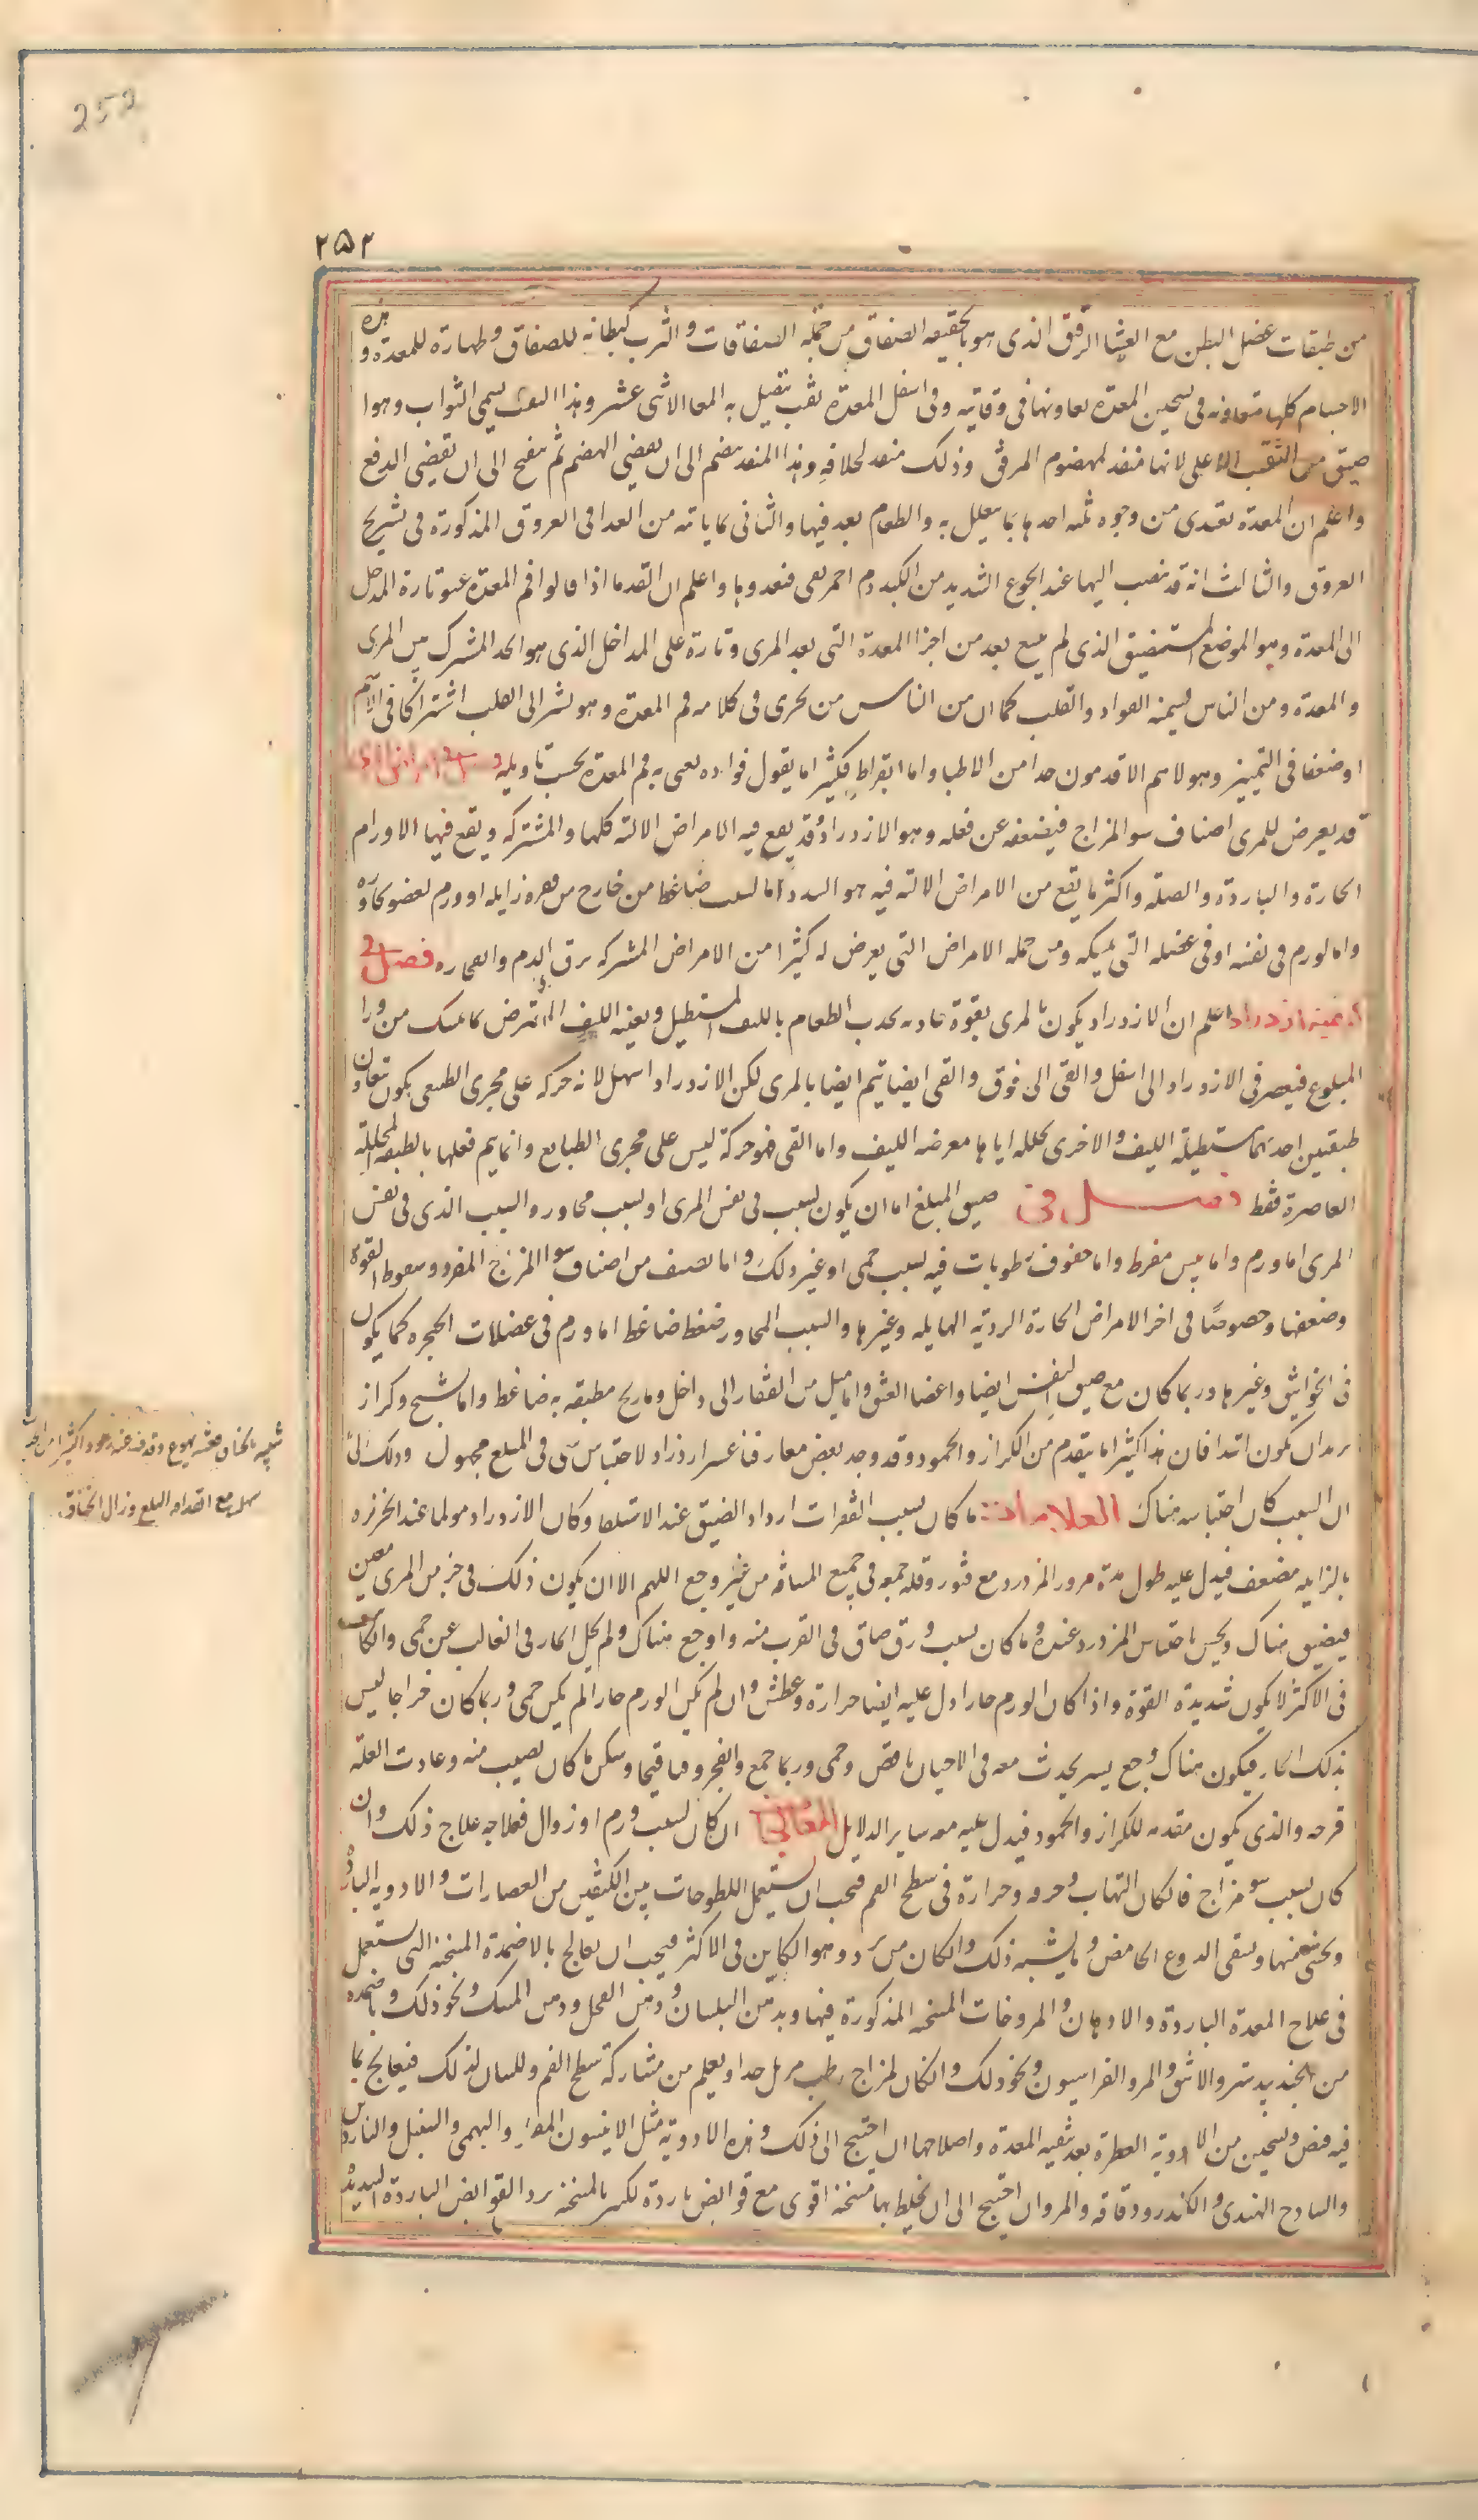 252
٢٥٢
من طبقات عضل البطن مع الغشا الرقيق الذى هو بالحقيقه الصفاق من جمله الصفاقات و الثرب كبطانه للصفاق و ظهارة للمعدة و هذه
الاجسام كلها متعاونه فى تسخين المعدة تعاونها فى وقايته وفى اسفل المعدة ثقب يتصل به المعا الاثنى عشر وهذا الثقب يسمى البواب وهو ا
ضيق من الثقب الاعلى لانها منفذ لمهضوم المرقق وذلك منفذ لخلافه وهذا المنفذ ينضم الى ان يقضى الهضم ثم ينفتح الى ان يقضى الدفع
واعلم ان المعدة تغتذى من وجوه ثلثه احدها بما يتعلل به والطعام يعد فيها والثانى بما ياته من الغدا فى العروق المذكورة فى تشريح
العروق والثالث انه قد ينصب اليها عند الجوع الشديد من الكبد دم احمر نقى فيغدوها واعلم ان القدما اذا قالوا فم المعدة عنو تارة المدخل
الى المعدة وهو الموضع المستضيق الذى لم يتسع بعد من اجزا المعدة التى بعد المرى وتارة على المداخل الذى هو الحد المشترك بين المرى
والمعدة ومن الناس من يسمنه الفواد والقلب كما ان من الناس من يجرى فى كلامه فم المعدة وهو يشير الى القلب اشتراكا فى الاسم
او ضعفا فى التمييز وهولا هم الاقدمون جدا من الاطبا واما ابقراط فكثيرا ما يقول فواده يعنى به فم المعدة بحسب تاويله فصل فى امراض المرى
قد يعرض للمرى اصناف سو المزاج فيضعفه عن فعله وهو الازدراد وقد يقع فيه الامراض الاليه كلها والمشتركه ويقع فيها الاورام
الحارة والباردة والصلبه واكثر ما يقع من الامراض الاليه فيه هو السدد اما بسبب ضاغط من خارج من فقره زايله او ورم لعضو يجاوره
واما لورم فى نفسه او فى عضله التى يمسكه ومن جمله الامراض التى يعرض له كثيرا من الامراض المشتركه نزف الدم وانفجاره فصل فى
كيفيه ازدراد اعلم ان الازدراد يكون بالمرى بقوة جاذبه يجذب الطعام بالليف المستطيل و يعينه الليف المستعرض بما يمسك من ورا
المبلوع فيعصر فى الازدراد الى اسفل والقى الى فوق والقى ايضا يتم ايضا بالمرى لكن الازدراد اسهل لانه حركه على مجرى الطبيعى يكون بتعاون
طبقتين احديهما مستطيلة الليف والاخرى يجلله اياها معرضه الليف واما القى فهو حركة ليس على مجرى الطبايع وانما يتم فعلها بالطبقه المجلله
العاصرة فقط فصل فى ضيق المبلع اما ان يكون لسبب فى نفس المرى او لسبب مجاور والسبب الذى فى نفس
المرى اما ورم واما يبس مفرط واما جفوف رطوبات فيه بسبب حمى او غير ذلك و اما لصنف من اصناف سو المزاج المفرد وسقوط القوة
وضعفها وخصوصا فى اخر الامراض الحارة الرديه الهايله وغيرها والسبب المجاور ضغط ضاغط اما ورم فى عضلات الحنجره كما يكون
فى الخوانيق وغيرها وربما كان مع ضيق النفس ايضا واعضا العنق واما ميل من الفقار الى داخل وما ريح مطبقه به ضاغط واما تشنج وكزاز
يريد ان يكون ابتدا فان هذا كثيرا ما يتقدم من الكزاز والجمود وقد وجد بعض معارفنا عسر ازدراد لاحتباس شى فى المبلع مجهول وذلك
ان السبب كان احتباسه هناك العلامات ما كان بسبب الفقرات ازداد الضيق عند الاستلقا وكان الازدراد مولما عند الخرزه
بالزايله مضعف فيدل عليه طول مدة مرور المزدرد مع فتور وقله حميه فى جميع المسافه من غير وجع اللهم الا ان يكون ذلك فى جز من المرى معين
فيضيق هناك ويحس باحتباس المزدرد عنده وما كان بسبب ورق ضاق فى القرب منه واوجع هناك ولم يخل الحار فى الغالب عن حمى وان كانت
فى الاكثر لا يكون شديدة القوة واذا كان الورم حارا دل عليه ايضا حرارة وعطش وان لم يكن الورم حارا لم يكن حمى وربما كان خراجا ليس
بذلك الحار فيكون هناك وجع يسير يحدث معه فى الاحيان نافض وحمى وربما جمع وانفجر وقيا قيحا وسكن ما كان يصيب منه وعادت العله
قرحه والذى يكون مقدمه للكزاز والجمود فيدل عليه معه ساير الدلايل المعالجات ان كان بسبب ورم او زوال فعلاجه علاج ذلك وان
كان بسبب سو مزاج فان كان التهاب وحرقه وحرارة فى سطح الفم فيجب ان يستعمل اللطوخات بين الكتفين من العصارات والادويه البارده
ويحسى منها ويسقى الدوغ الحامض وما يشبه ذلك وان كان من برد وهو الكاين فى الاكثر فيجب ان يعالج بالاضمدة المسخنه التى يستعمل
فى علاج المعدة الباردة والادهان والمروخات المسخنه المذكورة فيها وبدهن البلسان ودهن الفجل ودهن المسك ونحو ذلك وباضمده
من الجندبيدستر والاشق والمر والفراسيون ونحو ذلك وان كان لمزاج رطب مرهل جدا ويعلم من مشاركة سطح الفم واللسان لذلك فيعالج بما
فيه قبض وتسخين من الادوية العطرة بعد تنقيه المعدة واصلاحها ان احتيج الى ذلك وهذه الادوية مثل الانيسون والبهمن والسنبل والناردين
والسادج الهندى والكندر ودقاقه والمر وان احتيج الى ان يخلط بها مسخنة اقوى مع قوابض باردة ليكسر بالمسخنه برد القوابض الباردة الشديده
سهل مع القدامه البلع وزال الخناق